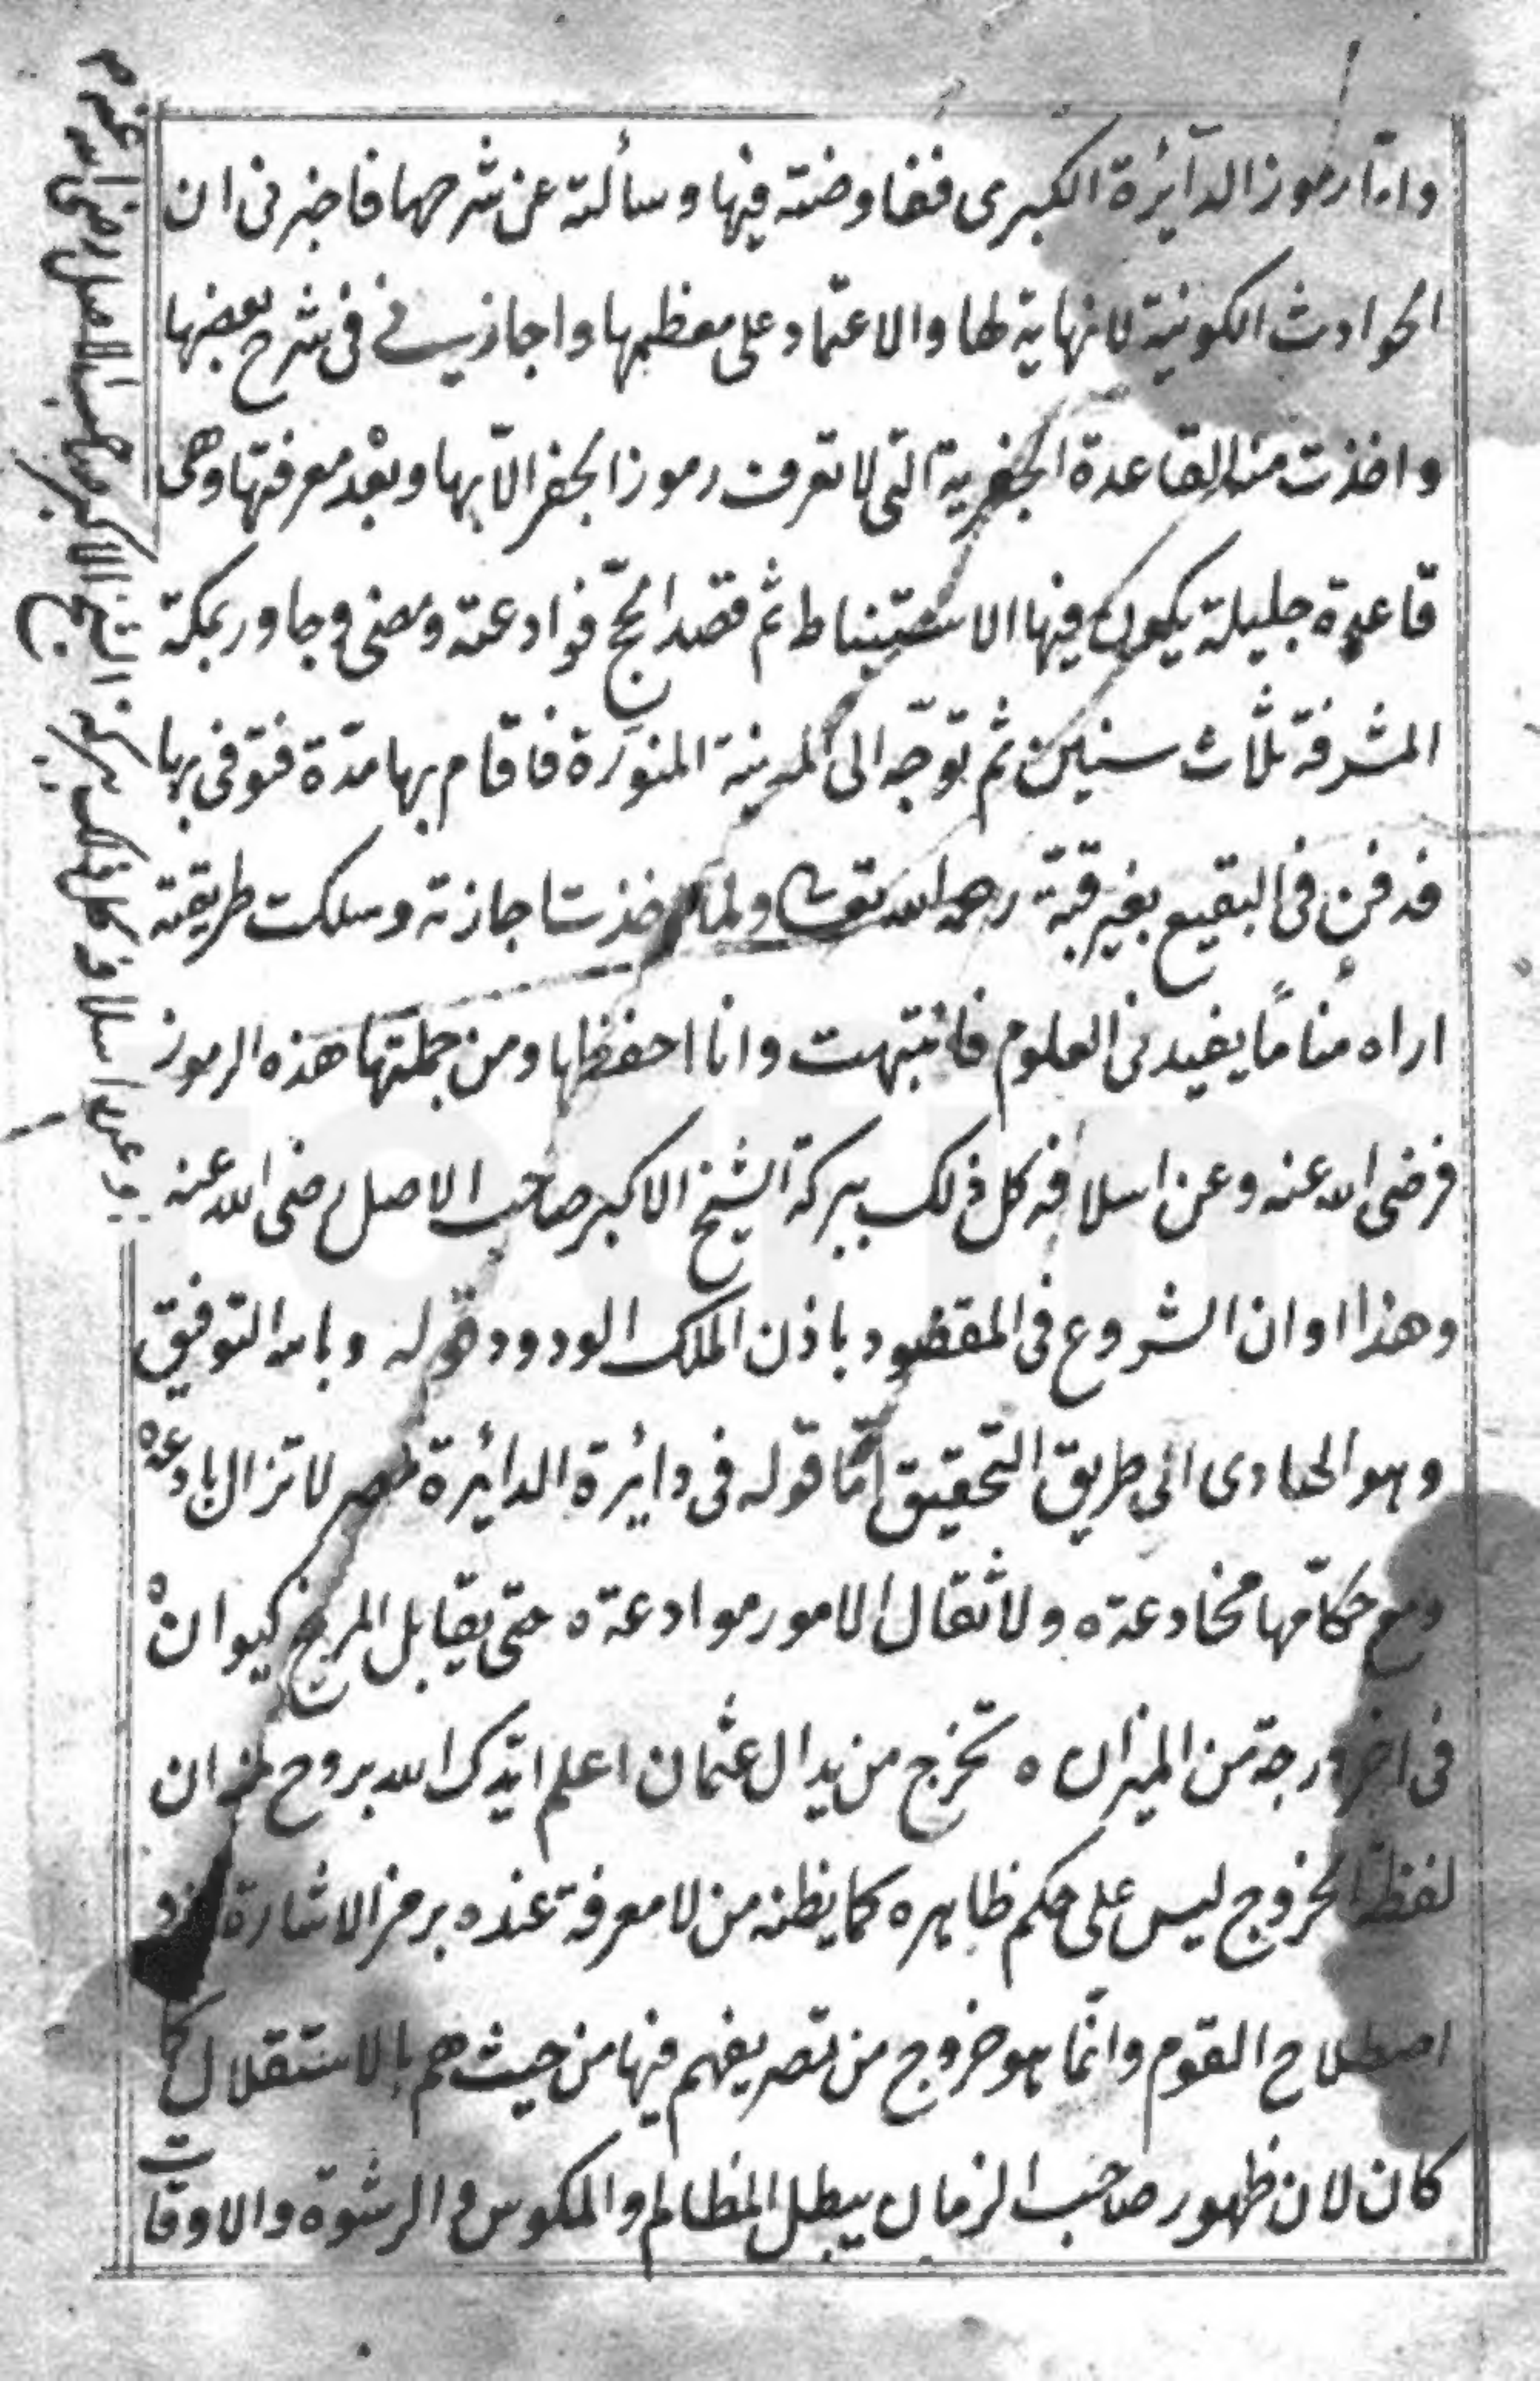 وامّا رموز الدآئرة الكبرى ففاوضته فيها وسألته عن شرحها فاخبرنى ان
الحوادث الكونية لا نهاية لها والاعتماد على معظمها واجازنى فى شرح بعضها
واخذت منه القاعدة الجفرية التى لا تعرف رموز الجفر الّا بها وبعْد معرفتها وهى
قاعدة جليلة يكون فيها الاستنباط ثم قصد الحجّ فوادعته ومضى وجاور بمكة
المشرفة ثلاث سنين ثم توجّه الى المدينة المنوّرة فاقام بها مدّة فتوفى بها
فدفن فى البقيع بغير قبّة رحمه الله تعالى ولما اخذت اجازته وسلكت طريقته
اراه منامًا يفيدنى العلوم فانتبهت وانا احفظها ومن جملتها هذه الرموز
فرضى الله عنه وعن اسلافه كل ذلك ببركة الشيخ الاكبر صاحب الاصل رضى الله عنه
وهذا اوان الشروع فى المقصود باذن الملك الودود قوله وبالله التوفيق
وهو الهادى الى طريق التحقيق امّا قوله فى دائرة الدائرة مصر لا تزال بادعة
ومع حكّامها مخادعة ه ولاثقال الامور موادعة ه حتى يقابل المريخ كيوان ه
فى اخر درجة من الميزان ه تخرج من يد ال عثمان اعلم ايّدك الله بروح منه ان
لفظة الخروج ليس على حكم ظاهره كما يظنه من لا معرفة عنده برمز الاشارة
اصطلاح القوم وانّما هو خروج من تصريفهم فيها من حيث هم بالاستقلال كما
كان لان ظهور صاحب الزمان يبطل المظالم والمكوس والرشوة والاوقات
وعن اسلافه كل ذلك ببركة الشيخ الاكبر صاحب الاصل رضى الله عنه م